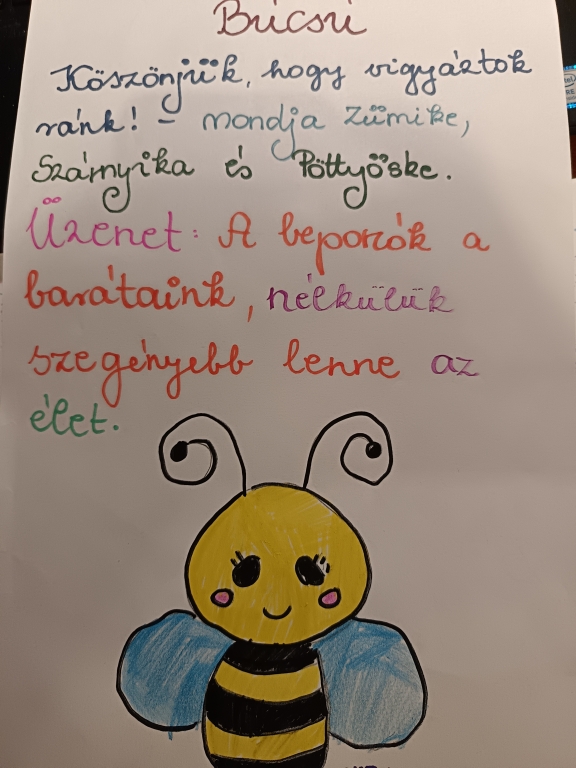 Búcsú
Köszönjük, hogy vigyáztok
ránk! - mondja Zümike,
Szárnyika és Pöttyöske.
Üzenet: A beporzók a
barátaink, nélkülük
szegényebb lenne az
élet.